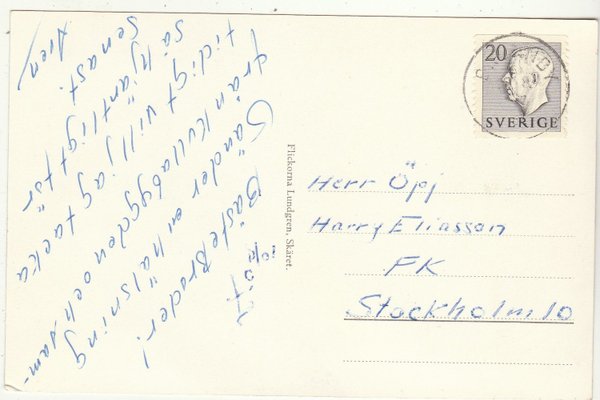 5/8 57
Bäste Broder!
Sänder en hälsning
från Kullabygden och sam-
tidigt vill jag tacka
så hjärtligt för
senast.
Sven
Flickorna Lundgren, Skäret.
20
SVERIGE
Herr Öpj
Harry Eliasson
FK
Stockholm 10